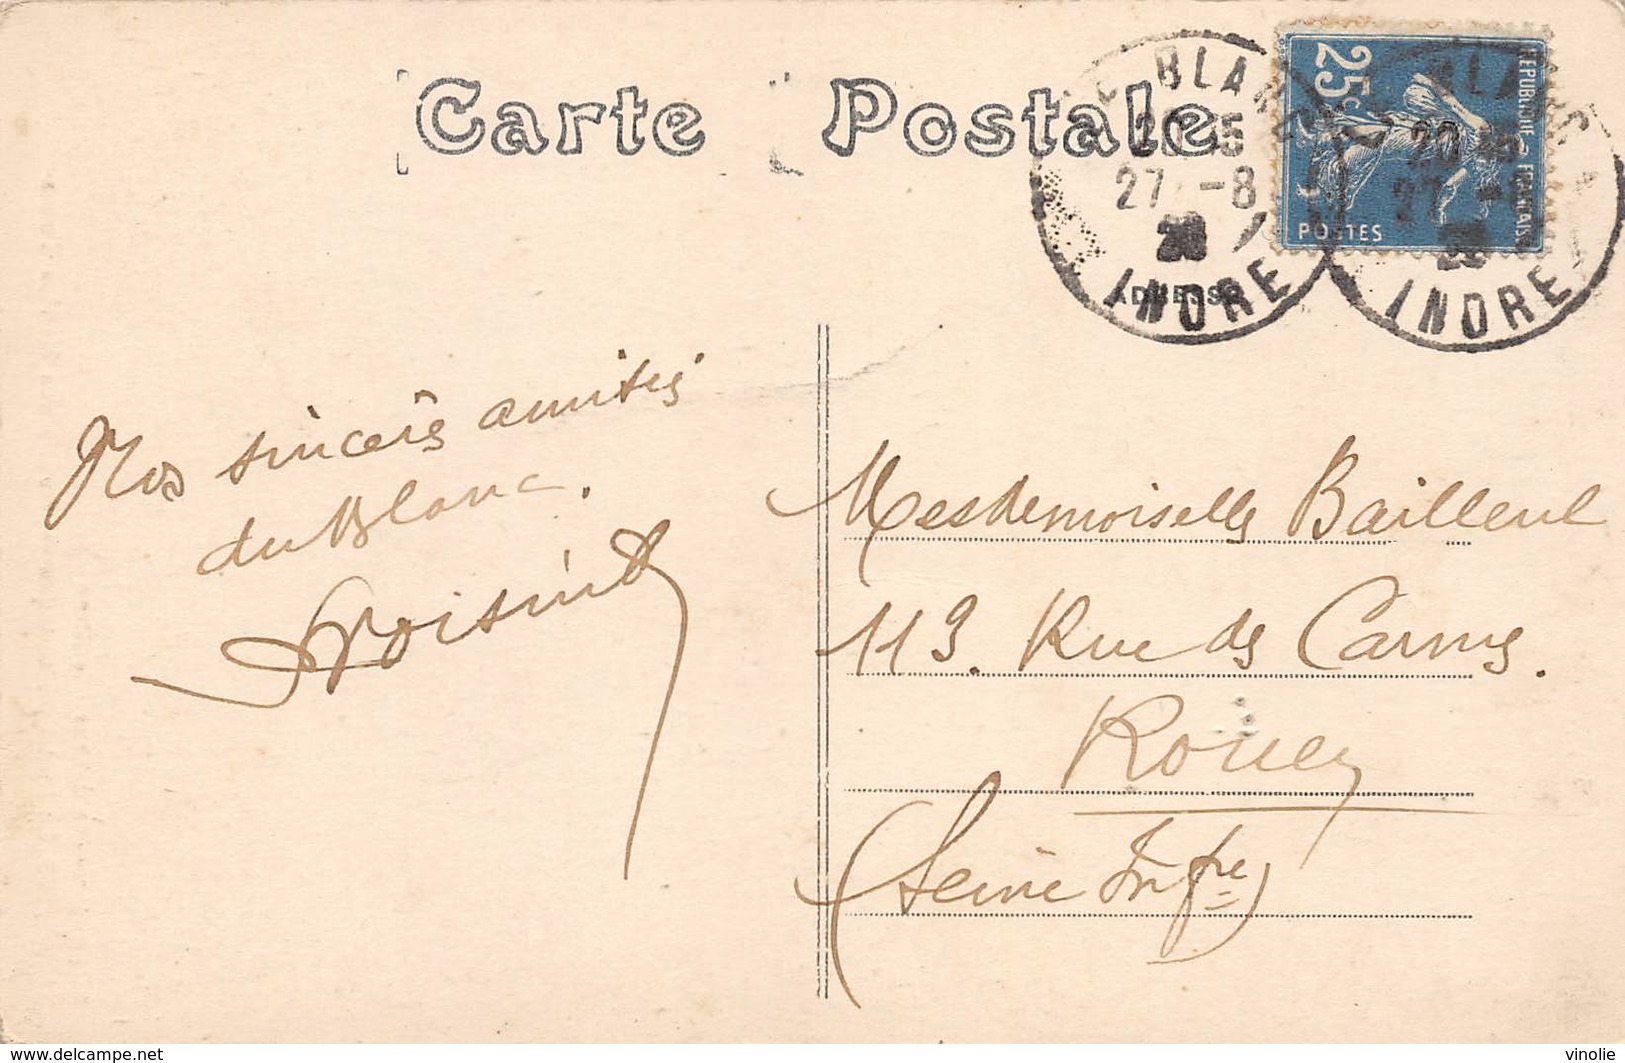 Carte Postale
LE BLANC
20 15
27 -8
INDRE
25c
REPUBLIQUE FRANÇAISE
POSTES
BLANC
27 -8
INDRE
ADRESSE
Nos sincères amitiés
du Blanc.
Mesdemoiselles Bailleul
113. Rue des Carmes.
Rouen
(Seine Infre)
www.delcampe.net
vinolie